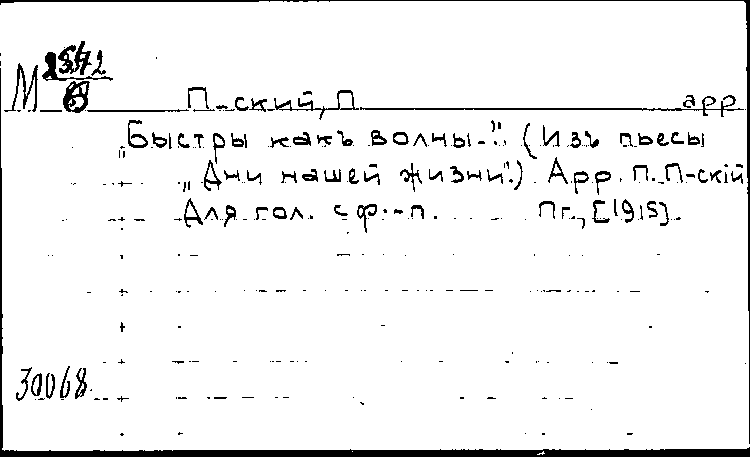 М
П-ский, П. арр
„Быстры какъ волны.." (Изъ пьесы
„Дни нашей жизни".) Арр. П. П-скій
Для гол. с ф.-п. Пг., [1915].
30068